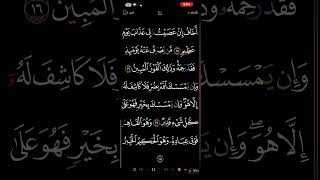 أَخَافُ إِنْ عَصَيْتُ رَبِّي عَذَابَ يَوْمٍ
عَظِيمٍ ١٥ مَّن يُصْرَفْ عَنْهُ يَوْمَئِذٍ
فَقَدْ رَحِمَهُ وَذَٰلِكَ الْفَوْزُ الْمُبِينُ ١٦
وَإِن يَمْسَسْكَ اللَّهُ بِضُرٍّ فَلَا كَاشِفَ لَهُ
إِلَّا هُوَ وَإِن يَمْسَسْكَ بِخَيْرٍ فَهُوَ عَلَىٰ
كُلِّ شَيْءٍ قَدِيرٌ ١٧ وَهُوَ الْقَاهِرُ
فَوْقَ عِبَادِهِ وَهُوَ الْحَكِيمُ الْخَبِيرُ